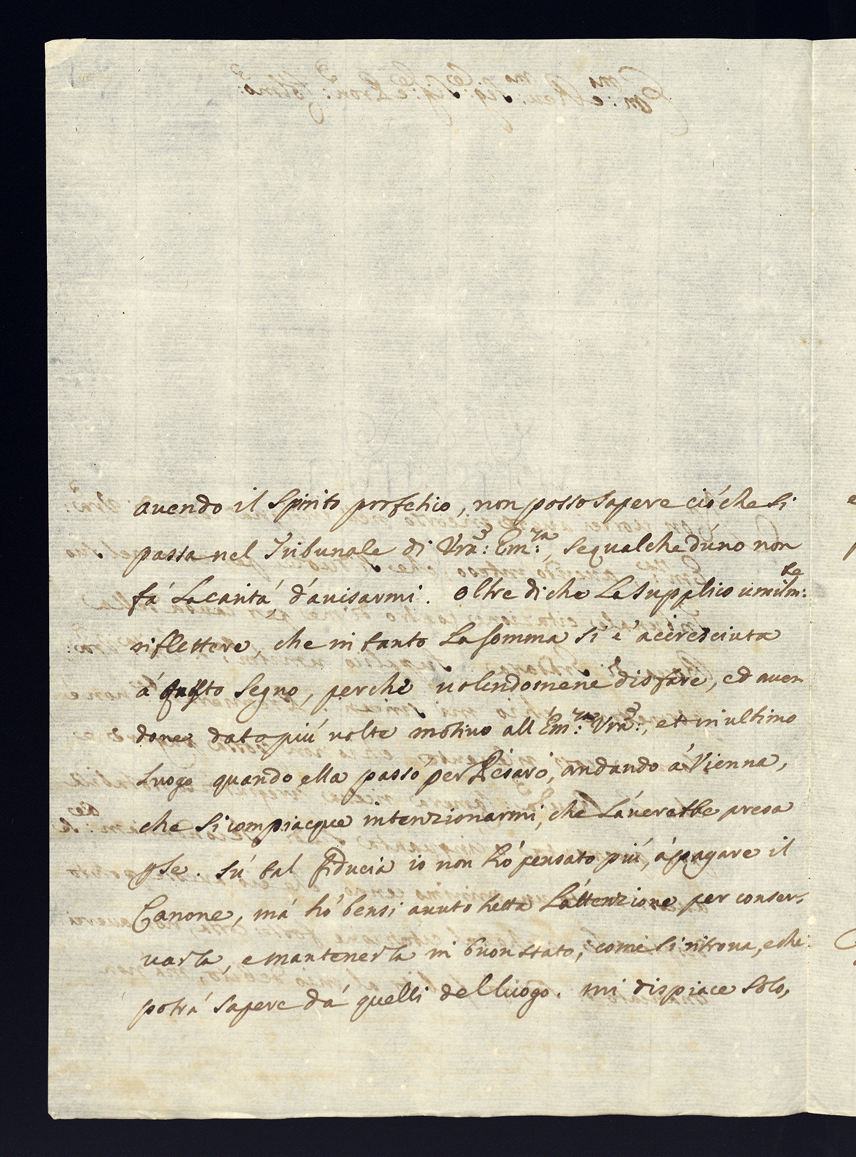 avendo il Spirito porfetico, non posso sapere ciò che si
passa nel Tribunale di Vrã: Em:za, se qualched'uno non
fá La caritá d'avisarmi. Oltre di che La supplico umilm:te
riflettere, che in tanto La somma si é accresciuta
á questo segno, perche volendomene disfare, ed aven
done dato più volte motivo all'Em:za Vrã:, et in ultimo
Luogo quando ella passo per Pesaro, andando á Vienna,
che si compiacque intenzionarmi, che L'averebbe presa
p se. Sú tal fiducia io non hó pensato più, á pagare il
Canone, má hó bensi avuto tutta L'attenzione per conser,,
varla, e mantenerla in buon stato, come si ritrova, e che
potrá sapere dá quelli del luogo. mi dispiace solo,